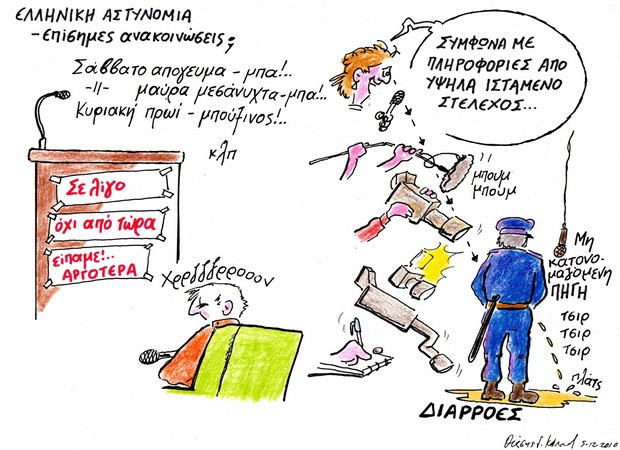 ΕΛΛΗΝΙΚΗ ΑΣΤΥΝΟΜΙΑ
- ΕΠΙΣΗΜΕΣ ΑΝΑΚΟΙΝΩΣΕΙΣ;
Σάββατο απόγευμα - μπα!..
-//- μαύρα μεσάνυχτα - μπα!..
Κυριακή πρωί - μπούζινος!..
κλπ
Σε λίγο
όχι από τώρα
είπαμε!..
ΑΡΓΟΤΕΡΑ
ΣΥΜΦΩΝΑ ΜΕ
ΠΛΗΡΟΦΟΡΙΕΣ ΑΠΟ
ΥΨΗΛΑ ΙΣΤΑΜΕΝΟ
ΣΤΕΛΕΧΟΣ...
μπουμ
μπουμ
Μη
κατονο-
μαζόμενη
ΠΗΓΗ
τσιρ
τσιρ
τσιρ
πλάτς
ΔΙΑΡΡΟΕΣ
5-12-2010